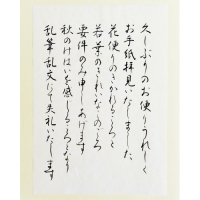 久しぶりのお便りうれしく
お手紙拝見いたしました
花便りのきかれるころと
若葉のきれいなこのころ
要件のみ申しあげます
秋のけはいを感じるころとなり
乱筆乱文にて失礼いたします